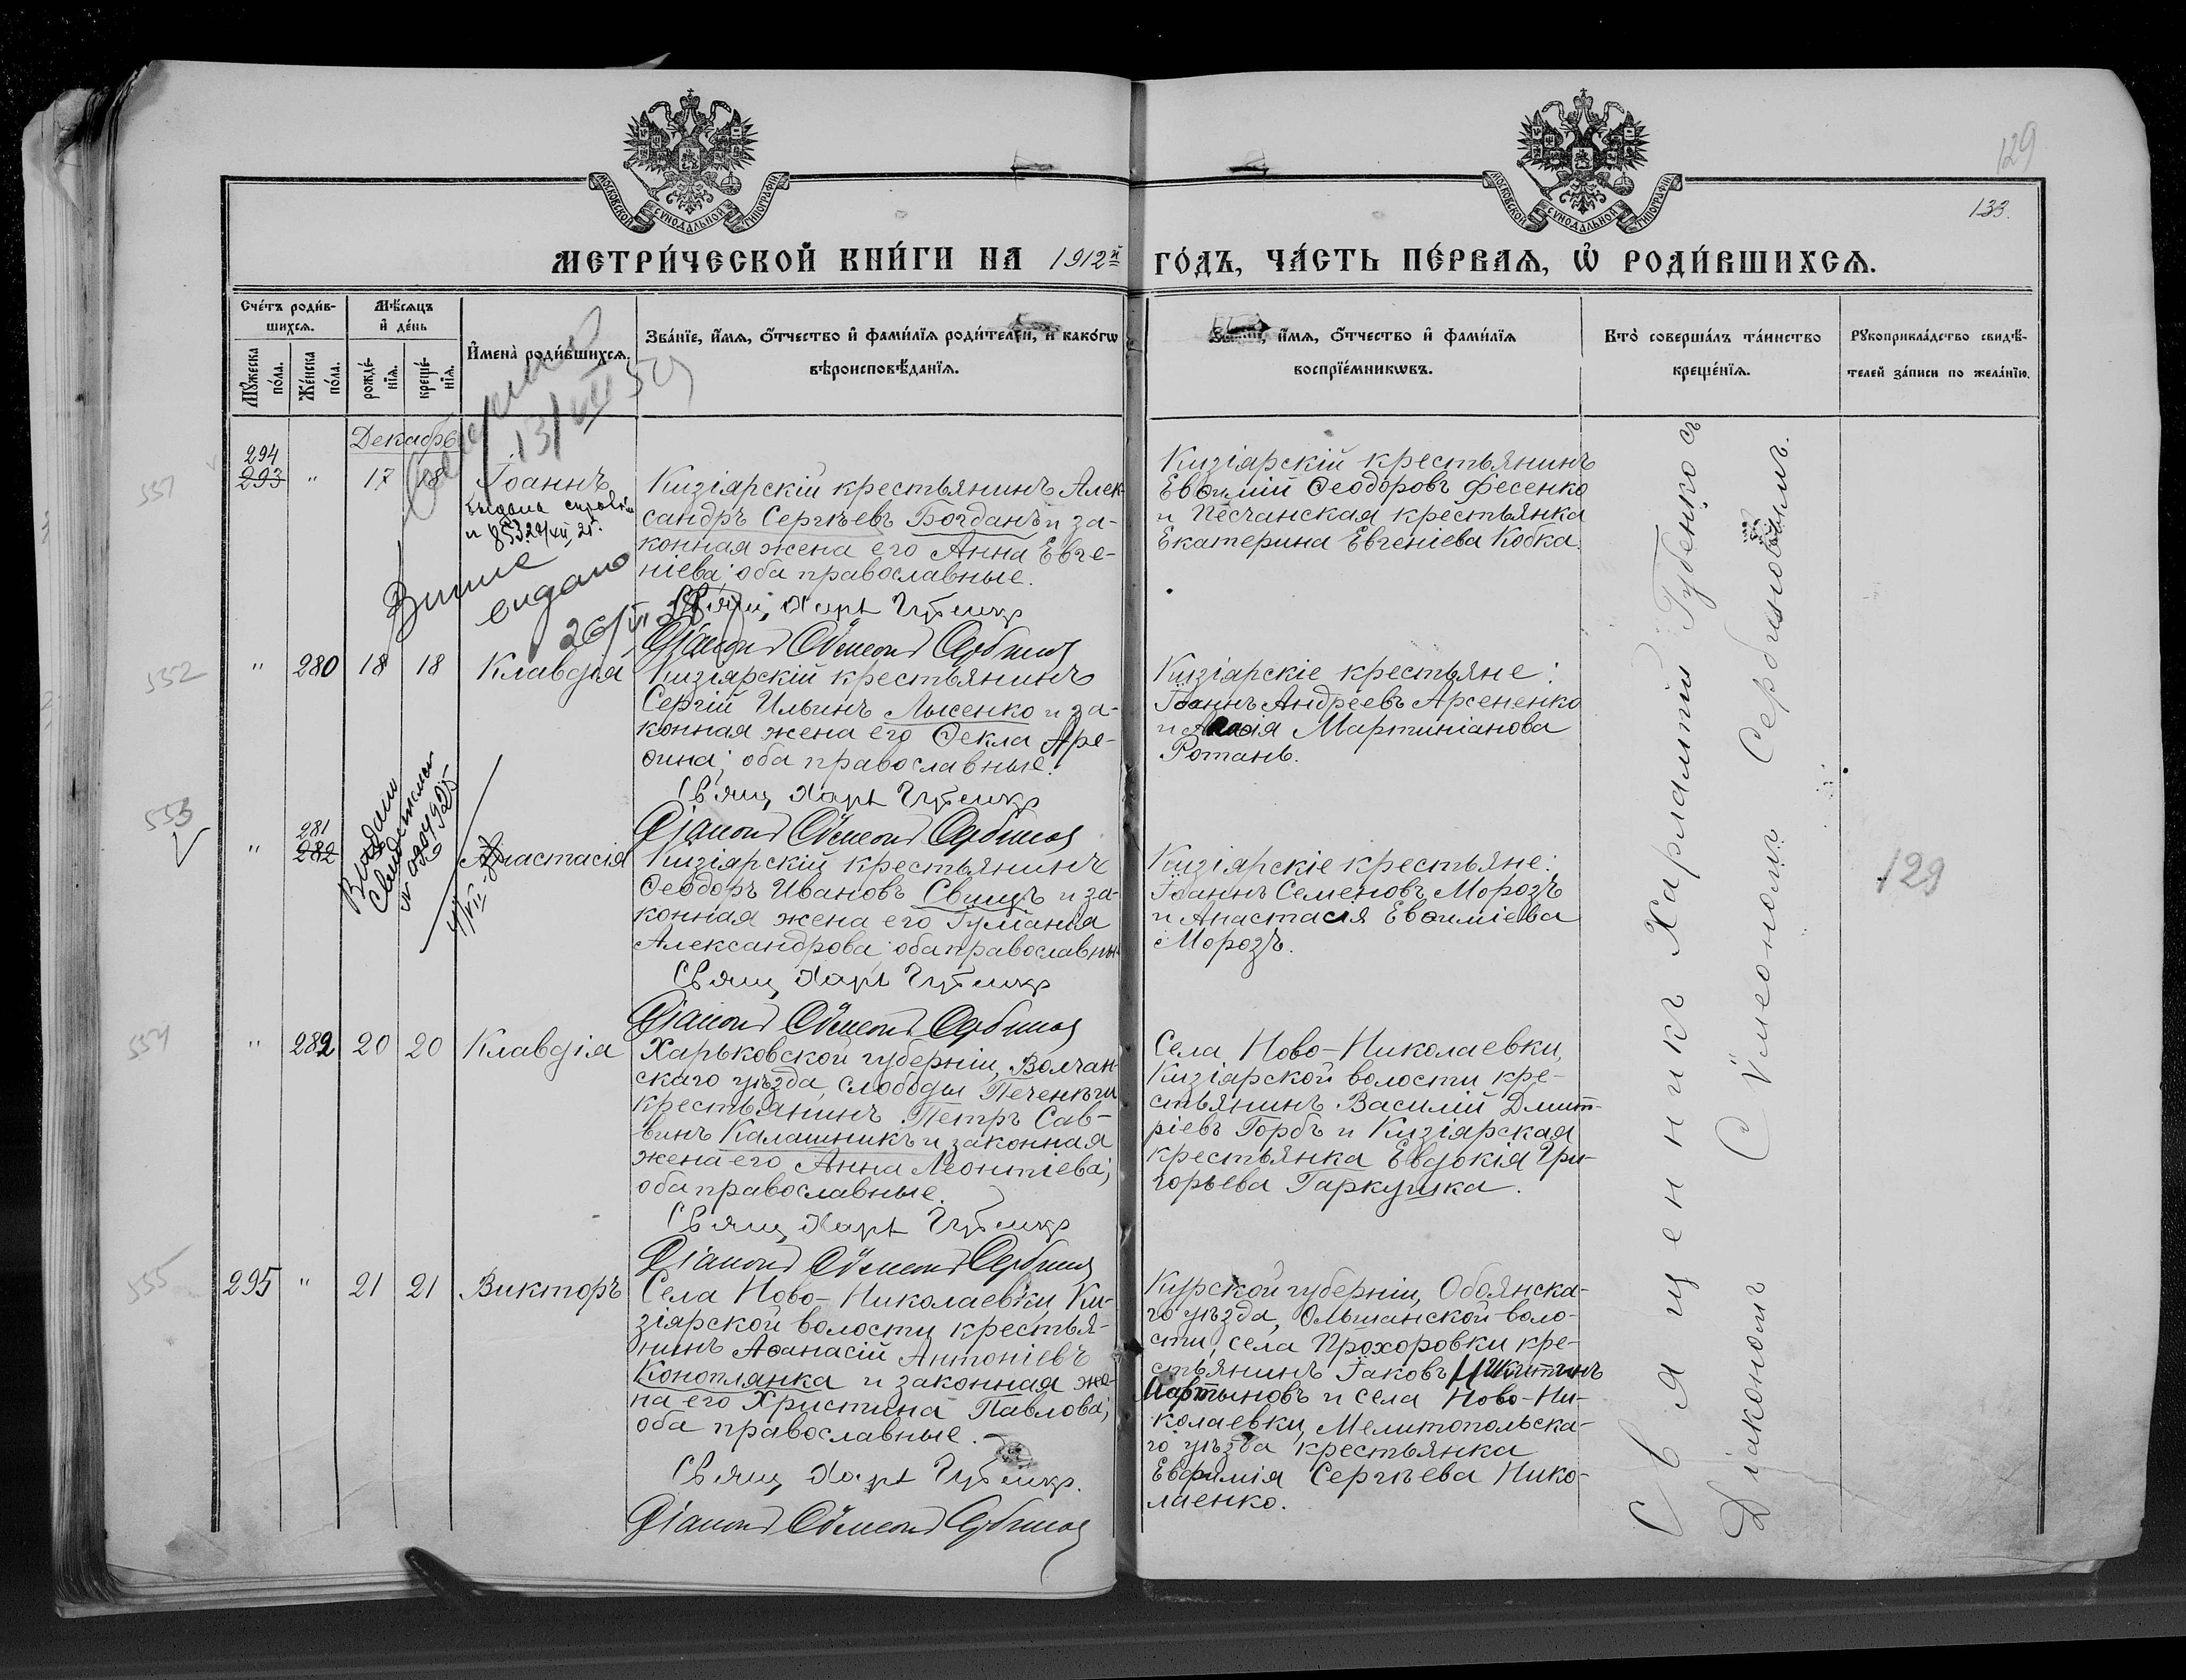 129
133.
МОСКОВСКОЙ СѴНОДАЛЬНОЙ ТИПОГРАФІИ
МОСКОВСКОЙ СѴНОДАЛЬНОЙ ТИПОГРАФІИ
МЕТРИ́ЧЕСКОЙ КНИ́ГИ НА 1912й ГО́ДЪ, ЧА́СТЬ ПЕ́РВАѦ, Ѡ҆ РОДИ́ВШИХСѦ.
Сче́тъ роди́в-
шихсѧ.
Мꙋ́жеска
по́ла.
Же́нска
по́ла.
Мѣ́сѧцъ
и҆ де́нь
рожде́-
нїѧ.
креще́-
нїѧ.
И҆мена̀ роди́вшихсѧ.
Зва́нїе, и҆́мѧ, ѻ҆́тчество и҆ фами́лїѧ роди́телей, и҆ како́гѡ
вѣроисповѣ́данїѧ.
Зва́нїе, и҆́мѧ, ѻ҆́тчество и҆ фами́лїѧ
воспрїе́мникѡвъ.
Кто̀ соверша́лъ та́инство
креще́нїѧ.
Рꙋкоприкла́дство свидѣ́-
телей за́писи по жела́нїю.
Декабрь
13/VII 59
551
294
293 " 17 18 Іоаннъ
Кизіярскій крестьянинъ Алек-
сандръ Сергѣевъ Богданъ и за-
конная жена его Анна Евге-
ніева; оба православные.
Свящ. Харл. Губенко
Діаконъ Сѵмеонъ Сербиновъ
Кизіярскій крестьянинъ
Евѳимій Ѳеодоровъ Фесенко
и Песчанская крестьянка
Екатерина Евгеніева Кобка.
видано
26/VI
552
" 280 18 18 Клавдія
Кизіярскій крестьянинъ
Сергій Ильинъ Лысенко и за-
конная жена его Ѳекла Аре-
ѳина; оба православные.
Свящ. Харл. Губенко
Діаконъ Сѵмеонъ Сербиновъ
Кизіярскіе крестьяне:
Іоаннъ Андреевъ Арсененко
и Мартиніанова
Ротань.
553
281
" 282 Анастасія
Кизіярскій крестьянинъ
Ѳеодоръ Ивановъ Свищъ и за-
конная жена его Іуліанія
Александрова; оба православны
Свящ. Харл. Губенко
Діаконъ Сѵмеонъ Сербиновъ
Кизіярскіе крестьяне:
Іоаннъ Семеновъ Морозъ
и Анастасія Евѳиміева
Морозъ.
129
554
" 282 20 20 Клавдія
Харьковской губерніи, Волчан-
скаго уѣзда, слободы Печенѣги
крестьянинъ Петръ Сав-
винъ Калашникъ и законная
жена его Анна Леонтіева;
оба православные.
Свящ. Харл. Губенко
Діаконъ Сѵмеонъ Сербиновъ
Села Ново-Николаевки,
Кизіярской волости кре-
стьянинъ Василій Дмит-
ріевъ Горбъ и Кизіярская
крестьянка Евдокія Гри-
горьева Гаркушка.
555
295 " 21 21 Викторъ
Села Ново-Николаевки, Ки-
зіярской волости крестья-
нинъ Аѳанасій Антоніевъ
Коноплянка и законная же-
на его Христина Павлова;
оба православные.
Свящ. Харл. Губенко.
Діаконъ Сѵмеонъ Сербиновъ
Курской губерніи, Обоянска-
го уѣзда, Ольшанской воло-
сти, села Прохоровки кре-
стьянинъ Іаковъ Никитинъ
Мартыновъ и села Ново-Ни-
колаевки, Мелитопольска-
го уѣзда крестьянка
Евфимія Сергѣева Нико-
лаенко.
Священникъ Харлампій Губенко съ
Діакономъ Сѵмеономъ Сербиновымъ.